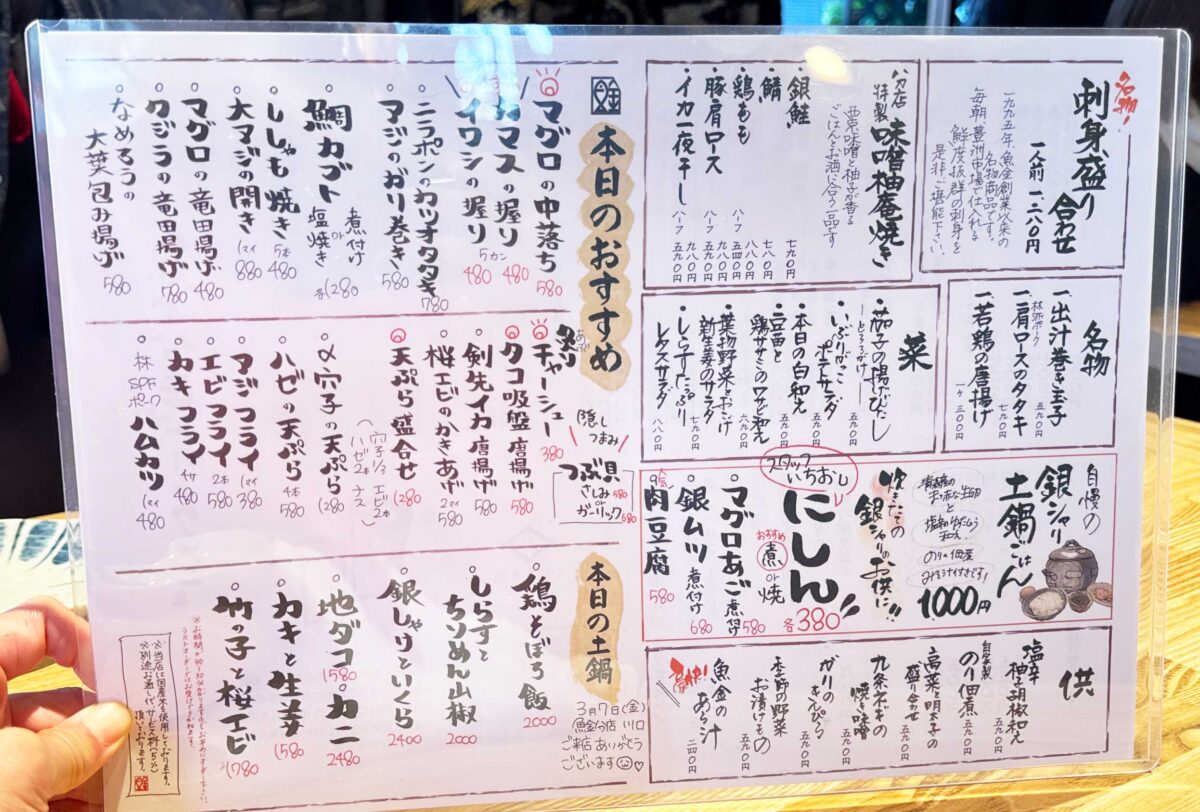 名物!
刺身盛り合わせ
一人前 一、二八〇円
一九九五年、魚金創業以来の
名物商品です。
毎朝、豊洲市場で仕入れる
鮮度抜群の刺身を
是非ご堪能下さい。
八夕店
特製
味噌柚庵焼き
西京味噌と柚子が香る
ごはんとお酒に合う一品です
・銀鮭
七九〇円
・鯖
七八〇円
・鶏もも
八八〇円
・豚肩ロース
ハーフ 五四〇円
九八〇円
・イカ一夜干し
ハーフ 五九〇円
名物
一、出汁巻き玉子
五九〇円
一、林SPFポーク 肩ロースのタタキ
七九〇円
一、若鶏の唐揚げ
一ヶ 三〇〇円
菜
・茄子の揚げびたし
五九〇円
・いぶりがっこ
ポテサラダ
五九〇円
・本日の白和え
五九〇円
・豆苗と
鶏ササミのワサビ和え
六九〇円
・葉物野菜とおこげ
新生姜のサラダ
七九〇円
・しらすたっぷり
レタスサラダ
八八〇円
自慢の
銀シャリ
土鍋ごはん
のりの佃煮
1000円
炊きたての
銀シャリのお供に!!
スタッフ
いちおし
にしん
おすすめ
煮 or 焼
各380
マグロあご 煮付け
580
銀ムツ 煮付け
680
肉豆腐
580
供
塩辛
柚子胡椒和え
五九〇円
自家製
のり佃煮
五九〇円
高菜と明太子の
盛り合わせ
五九〇円
九条ネギの
焼き味噌
五九〇円
ガリの
きんぴら
五九〇円
季節の野菜
お漬けもの
五九〇円
魚金の
あら汁
二四〇円
本日のおすすめ
マグロの中落ち
580
カマスの握り
480
イワシの握り
5カン
480
ニラポンのカツオタタキ
780
アジのガリ巻き
580
鯛カブト
煮付け
or
塩焼き
各1280
ししゃも焼き
5本
480
大アジの開き
(マイ
880
マグロの竜田揚げ
480
クジラの竜田揚げ
780
なめろうの
大葉包み揚げ
580
炙り
チャーシュー
380
タコ吸盤唐揚げ
580
剣先イカ唐揚げ
580
桜エビのかきあげ
2マイ
580
天ぷら盛合せ
1280
穴子1/3 エビ2本
ハゼ2本 ナス
〆穴子の天ぷら
1280
ハゼの天ぷら
4本
580
アジフライ
(マイ
380
エビフライ
2本
580
カキフライ
4ケ
480
林SPFポーク
ハムカツ
(マイ
480
隠し
つまみ
つぶ貝
さしみ 580
or
ガーリック 680
本日の土鍋
鶏そぼろ飯
2000
しらすと
ちりめん山椒
2000
銀しゃけといくら
2400
地ダコ 1580
カニ 2480
カキと生姜
1580
竹の子と桜エビ
1780
3月7日(金)
魚金八夕店 川口
ご来店ありがとう
ございます♡
ラストオーダーではお受けできかねます。
※当店は国産米を使用しております。
※別途お通し代、サービス料(5%)
頂いております。